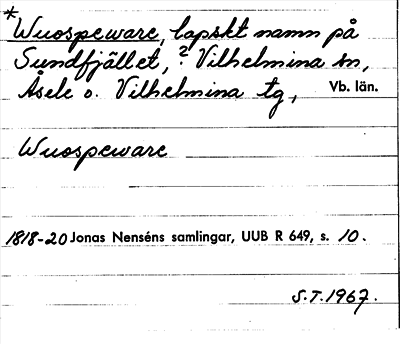 *Wuospeware, lapskt namn på
Sundfjället, ? Vilhelmina sn,
Åsele o. Vilhelmina tg, Vb. län.
Wuospeware
1818-20 Jonas Nenséns samlingar, UUB R 649, s. 10.
S.T. 1967.